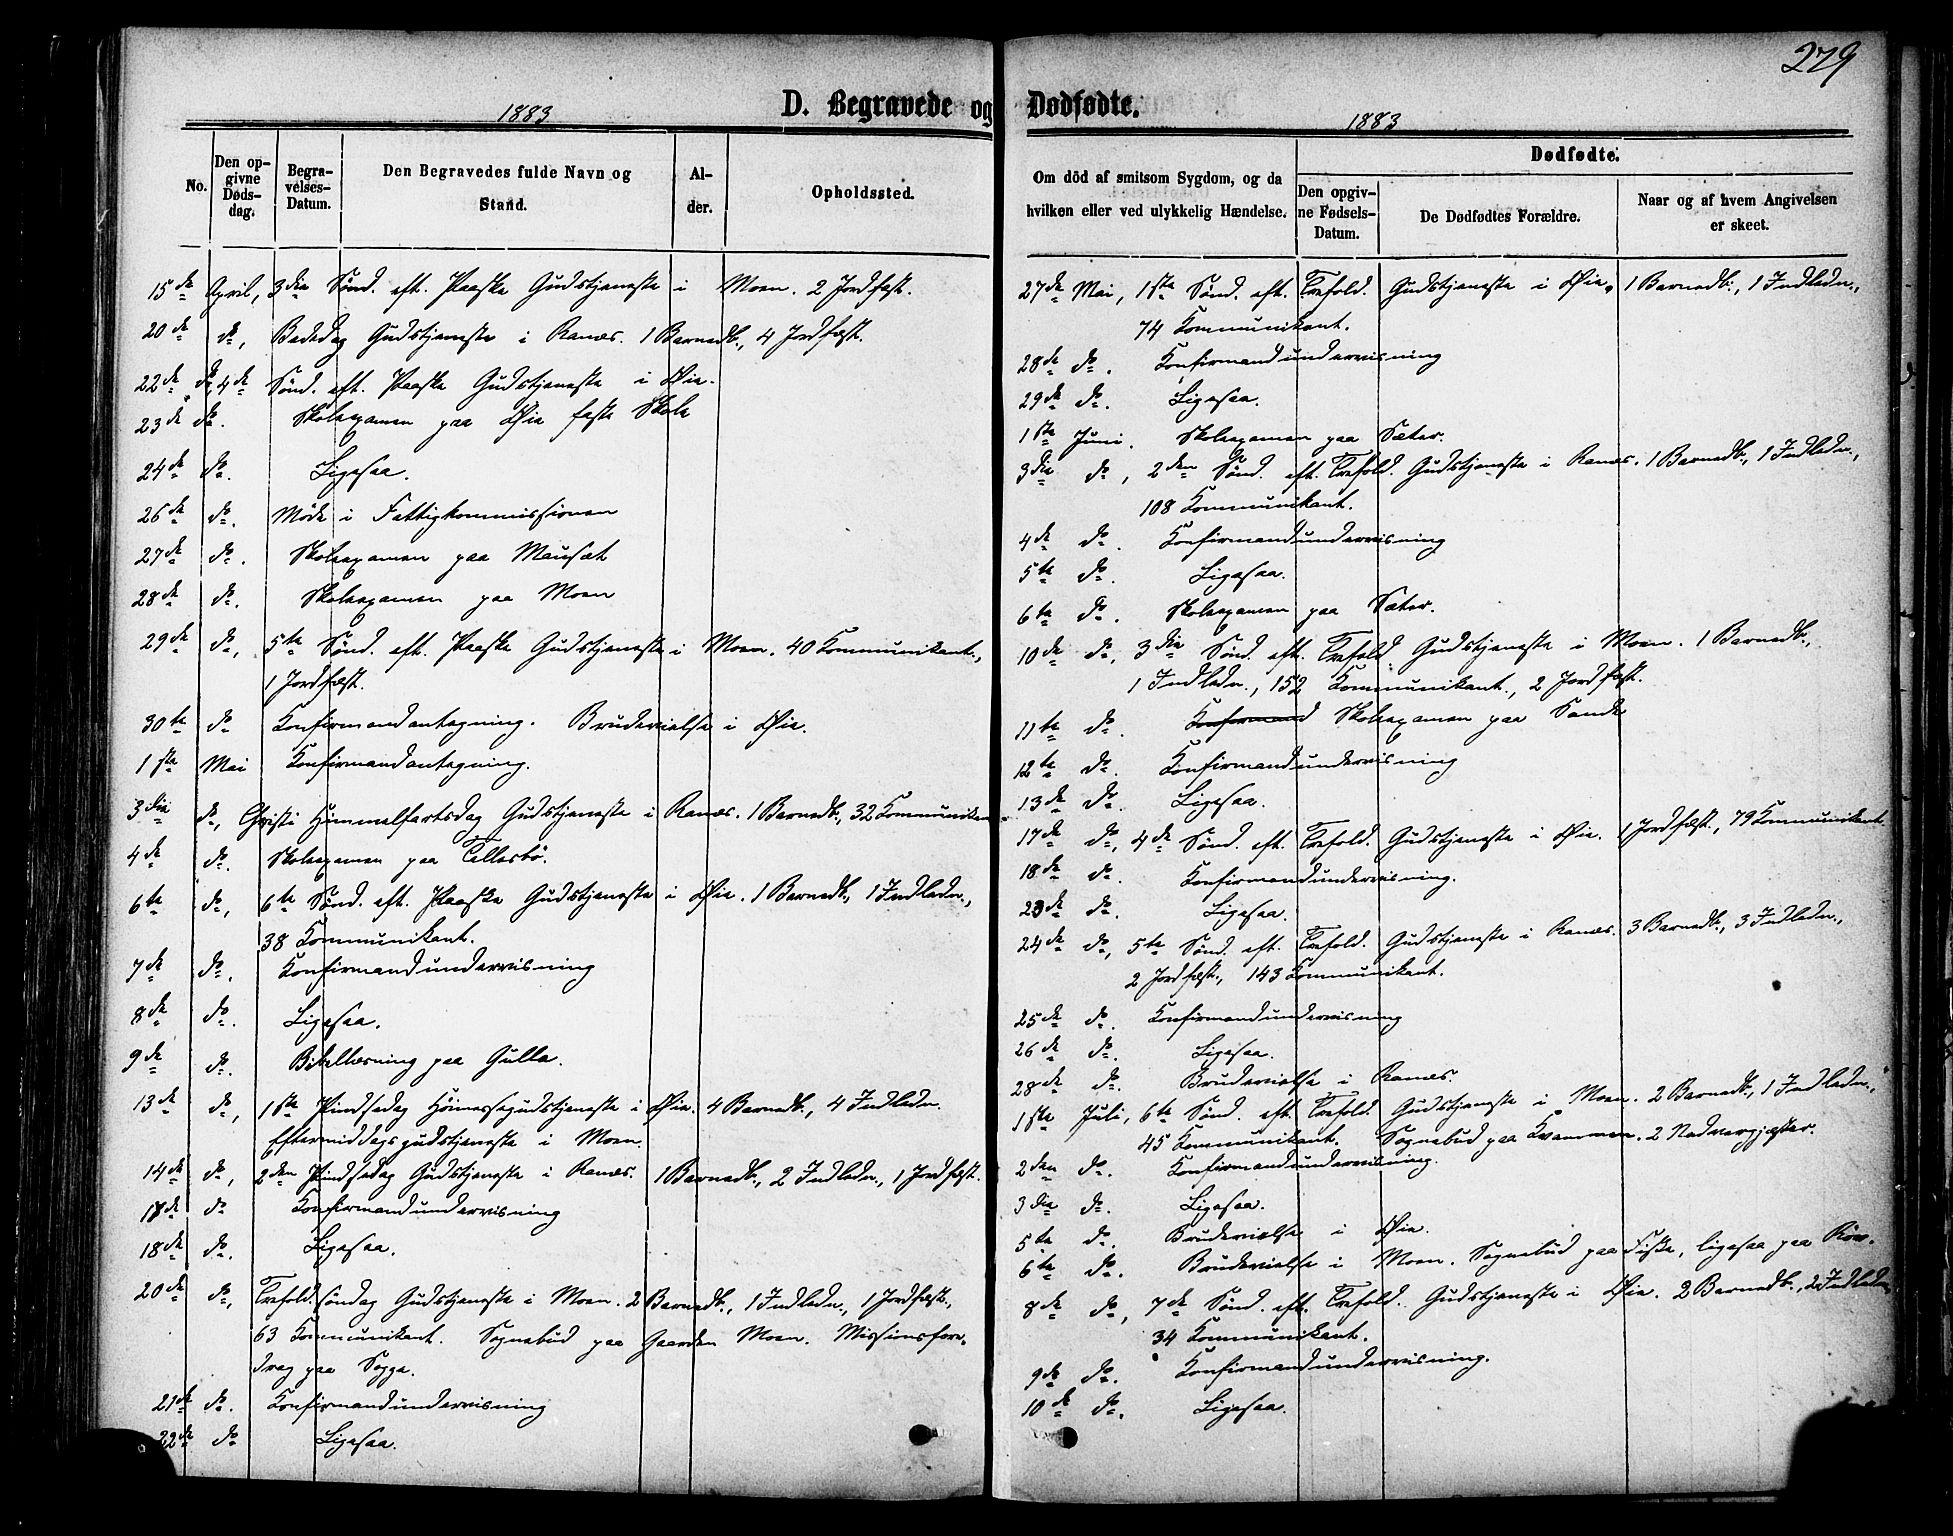 279
D. Begravede og Dødfødte.
1883
1883
No.
Den opgivne Døds-dag.
Begra-velses-Datum.
Den Begravedes fulde Navn og Stand.
Al-der.
Opholdssted.
Om död af smitsom Sygdom, og da hvilken eller ved ulykkelig Hændelse.
Dødfødte.
Den opgiv-ne Fødsels-Datum.
De Dødfødtes Forældre.
Naar og af hvem Angivelsen er skeet.
15de April, 3die Sönd. eft. Paaske Gudstjeneste i Moen. 2 Jordfæst.
20de do, Bededag Gudstjeneste i Ranes. 1 Barnedb., 4 Jordfæst.
22de do, 4de Sönd. eft. Paaske Gudstjeneste i Øie.
23de do. Skoleexamen paa Øie faste Skole
24de do. Ligesaa.
26de do. Möde i Fattigkommissionen
27de do. Skoleexamen paa Mauset
28de do. Skoleexamen paa Moen
29de do, 5te Sönd. eft. Paaske Gudstjeneste i Moen. 40 Kommunikant.,
1 Jordfæst.
30te do Konfirmandantagning. Brudevielse i Øie.
1ste Mai Konfirmandantagning.
3die do, Christi Himmelfartsdag Gudstjeneste i Ranes. 1 Barnedb., 32 Kommunikan
4de do. Skoleexamen paa Tellesbö.
6te do, 6te Sönd. eft. Paaske Gudstjeneste i Øie. 1 Barnedb., 1 Indledn.,
38 Kommunikant.
7de do. Konfirmandundervisning
8de do. Ligesaa.
9de do. Bibellæsning paa Gulla.
13de do, 1ste Pindsedag Höimessegudstjeneste i Øie. 4 Barnedb., 4 Indledn.
Eftermiddagsgudstjeneste i Moen.
14de do, 2den Pindsedag Gudstjeneste i Ranes. 1 Barnedb., 2 Indledn., 1 Jordfæst.
17de do Konfirmandundervisning
18de do. Ligesaa.
20de do, Trefold.söndag Gudstjeneste i Moen. 2 Barnedb., 1 Indledn., 1 Jordfæst.,
63 Kommunikant. Sognebud paa Gaarden Moen. Missionsfore-
drag paa Sogge.
21de do. Konfirmandundervisning
22de do Ligesaa.
27de Mai, 1ste Sönd. eft. Trefold. Gudstjeneste i Øie, 1 Barnedb., 1 Indledn.,
74 Kommunikant.
28de do. Konfirmandundervisning
29de do. Ligesaa.
1ste Juni. Skoleexamen paa Sæter.
3die do, 2den Sönd. eft. Trefold. Gudstjeneste i Ranes. 1 Barnedb., 1 Indledn.,
108 Kommunikant.
4de do. Konfirmandundervisning
5te do. Ligesaa.
6te do. Skoleexamen paa Sæter.
10de do, 3die Sönd. eft. Trefold. Gudstjeneste i Moen. 1 Barnedb.,
1 Indledn., 152 Kommunikant., 2 Jordfæst.
11te do. Konfirmand Skoleexamen paa Sande
12te do. Konfirmandundervisning
13de do. Ligesaa.
17de do, 4de Sönd. eft. Trefold. Gudstjeneste i Øie. 1 Jordfæst., 79 Kommunikant.
18de do. Konfirmandundervisning.
23de do. Ligesaa.
24de do, 5te Sönd. eft. Trefold. Gudstjeneste i Ranes. 3 Barnedb., 3 Indledn.,
2 Jordfæst., 143 Kommunikant.
25de do. Konfirmandundervisning
26de do. Ligesaa.
28de do. Brudevielse i Ranes.
1ste Juli, 6te Sönd. eft. Trefold. Gudstjeneste i Moen. 2 Barnedb., 1 Indledn.,
45 Kommunikant. Sognebud paa Kvammen. 2 Nadvergjæster.
2den do. Konfirmandundervisning.
3die do. Ligesaa.
5te do. Brudevielse i Øie.
6te do. Brudevielse i Moen. Sognebud paa Fiske, ligesaa paa Röv.
8de do, 7de Sönd. eft. Trefold. Gudstjeneste i Øie. 2 Barnedb., 2 Indledn
34 Kommunikant.
9de do. Konfirmandundervisning.
10de do. Ligesaa.